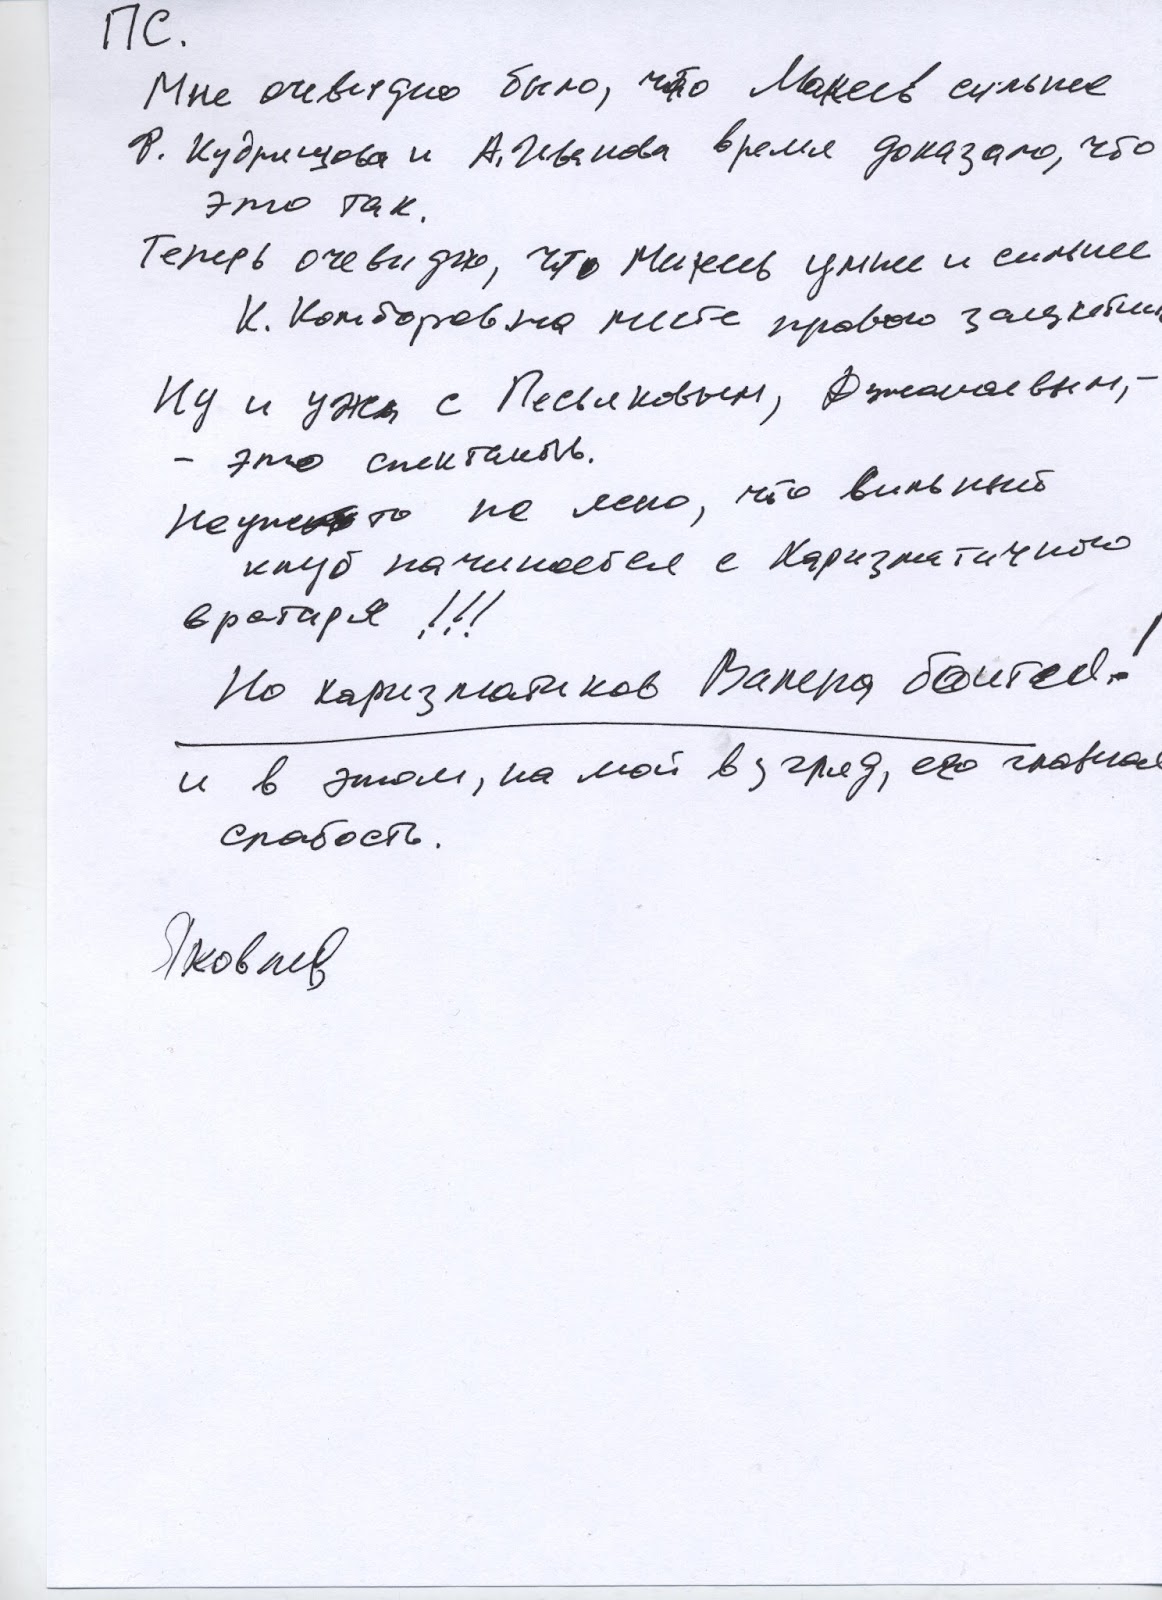 ПС.
Мне очевидно было, что Макеев сильнее
Ф. Кудряшова и А. Иванова время доказало, что
это так.
Теперь очевидно, что умнее и сильнее
К. Комбарова на месте правого защитник
Ну и уж с Песьяковым, Джанаевым, -
- это спектакль.
Неужто не ясно, что вильный
клуб начинается с харизматичного
вратаря !!!
Но харизматиков Валера боится!
и в этом, на мой взгляд, его главная
слабость.
Яковлев